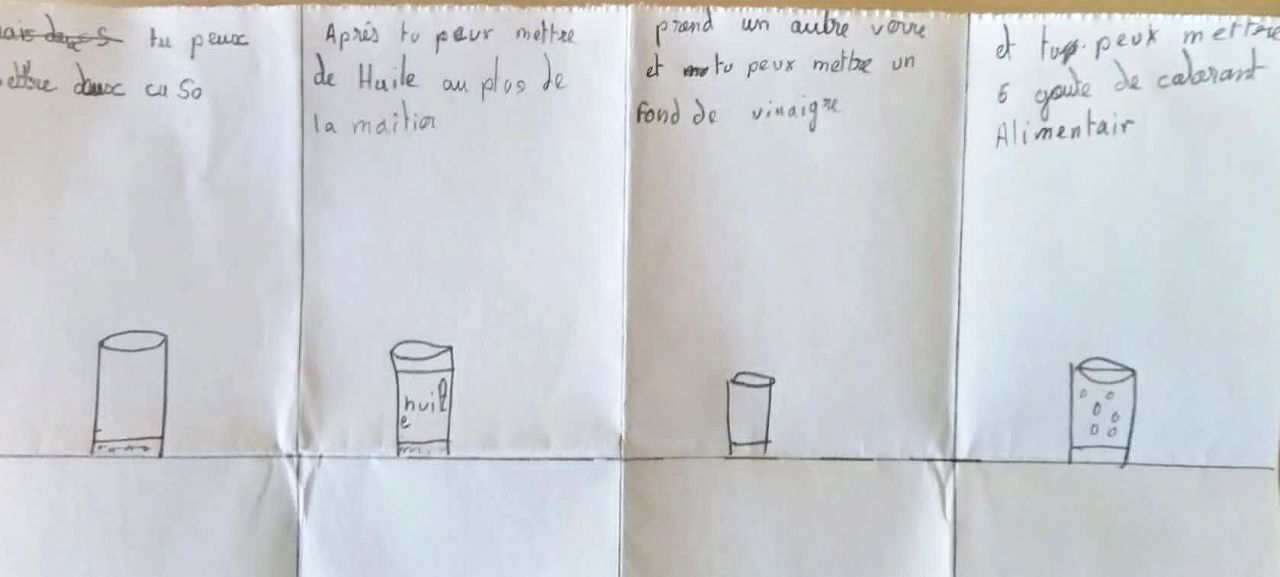 tu peux
ettre deux cu So
Après tu peur mettre
de Huile au plus de
la maitier
huil
e
prend un autre verre
et tu peux mettre un
fond de vinaigre
et tu peux mettre
5 goute de calorant
Alimentair